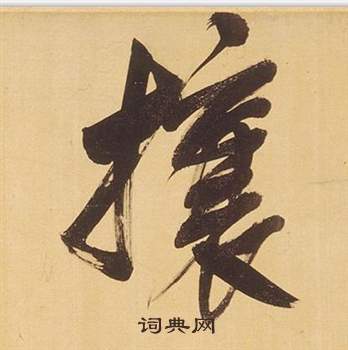 攘
词典网